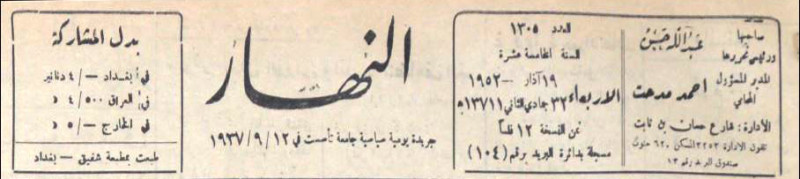 صاحبها
ورئيس تحريرها
عبدالله حسن
المدير المسؤول
المحامي
احمد مدحت
الادارة: شارع حسان بن ثابت
تلفون الادارة ٣٢٥٣ السكن ٦٢٠
صندوق البريد رقم ١٣
العدد ١٣٠٥
السنة الخامسة عشرة
١٩ آذار — ١٩٥٢
الاربعاء
جمادي الثاني ١٣٧١١ه
ثمن النسخة ١٢ فلساً
مسجلة بدائرة البريد برقم (١٠٤)
النهار
جريدة يومية سياسية جامعة تأسست في ١٢/٩/١٩٣٧
بدل المشاركة
في بغداد —/٤ دنانير
في العراق ٥٠٠/٤ د
في الخارج —/٥ د
طبعت بمطبعة شفيق — بغداد